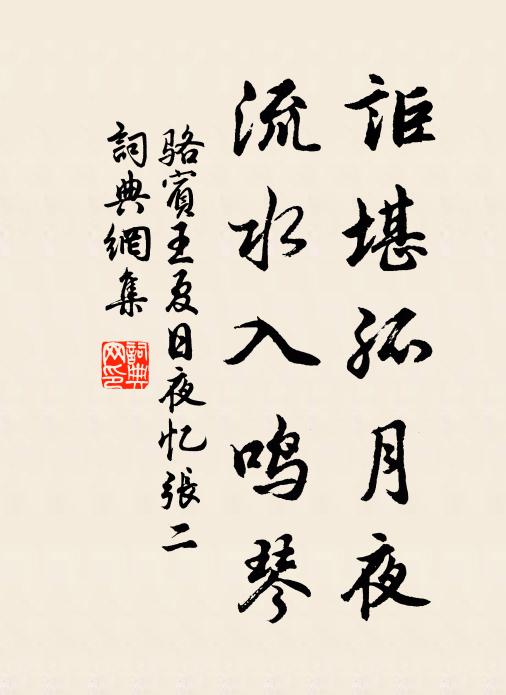 詎堪孤月夜
流水入鸣琴
骆賓王夏日夜忆張二
詞典網集
詞典網印